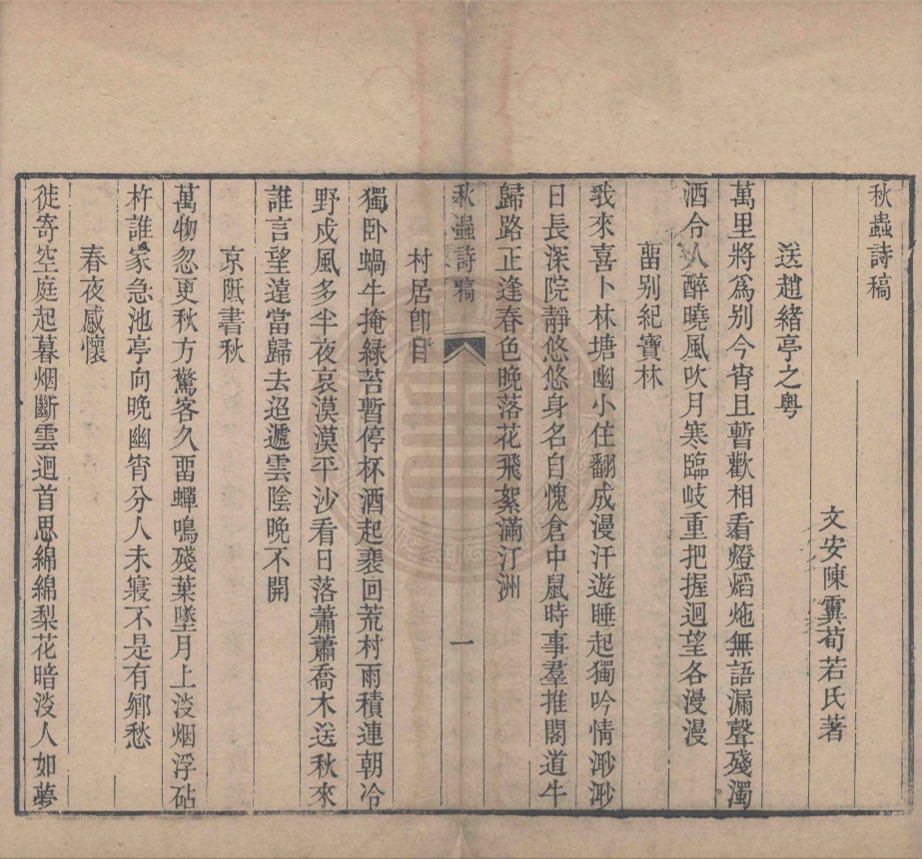 秋蟲詩稿
文安陳霣荀若氏著
送趙緒亭之粵
萬里將爲別今宵且暫歡相看燈熖炧無語漏聲殘濁
酒令人醉曉風吹月寒臨岐重把握迴望各漫漫
畱别紀寶林
我來喜卜林塘幽小住翻成漫汗遊睡起獨吟情渺渺
日長深院靜悠悠身名自愧倉中鼠時事羣推閣道牛
歸路正逢春色晚落花飛絮滿汀洲
秋蟲詩稿
一
村居卽目
獨卧蝸牛掩綠苔暫停杯酒起裵回荒村雨積連朝冷
野戍風多半夜哀漠漠平沙看日落蕭蕭喬木送秋來
誰言望遠當歸去迢遞雲陰晚不開
京邸書秋
萬物忽更秋方驚客久畱蟬鳴殘葉墜月上淡烟浮砧
杵誰家急池亭向晚幽宵分人未寢不是有鄉愁
春夜感懷
徙寄空庭起暮烟斷雲迴首思綿綿梨花暗淡人如夢